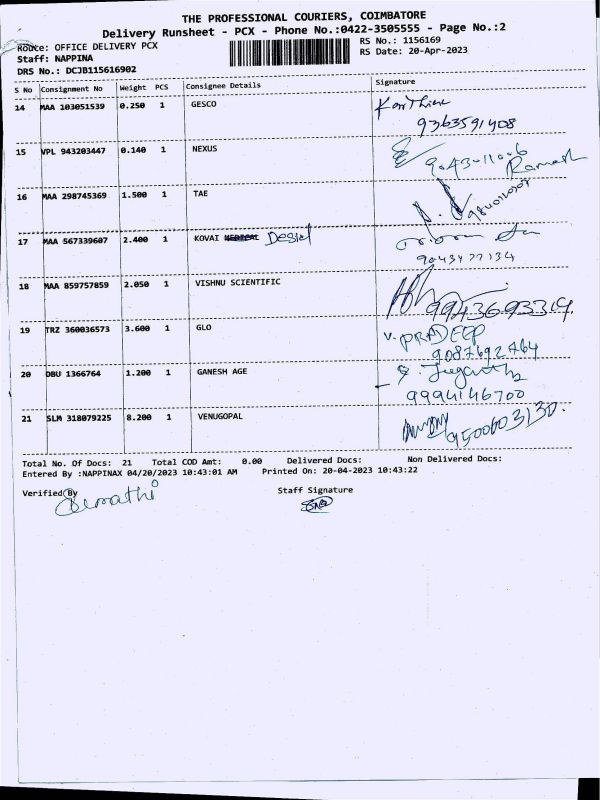 THE PROFESSIONAL COURIERS, COIMBATORE
Delivery Runsheet - PCX - Phone No.:0422-3505555 - Page No.:2
Route: OFFICE DELIVERY PCX
RS No.: 1156169
Staff: NAPPINA
RS Date: 20-Apr-2023
DRS No.: DCJB115616902
S No Consignment No Weight PCS Consignee Details Signature
14 MAA 103051539 0.250 1 GESCO Karthick
9363591408
15 VPL 943203447 0.140 1 NEXUS 9043011006
Ramesh
16 MAA 298745369 1.500 1 TAE
17 MAA 567339607 2.400 1 KOVAI MEDICAL Desiel
9043477134
18 MAA 859757859 2.050 1 VISHNU SCIENTIFIC
9943693314
19 TRZ 360036573 3.600 1 GLO V. PRADEEP
9087692764
20 DBU 1366764 1.200 1 GANESH AGE
9994146700
21 SLM 318079225 8.200 1 VENUGOPAL 9500603130.
Total No. Of Docs: 21 Total COD Amt: 0.00 Delivered Docs: Non Delivered Docs:
Entered By :NAPPINAX 04/20/2023 10:43:01 AM Printed On: 20-04-2023 10:43:22
Verified By
Staff Signature